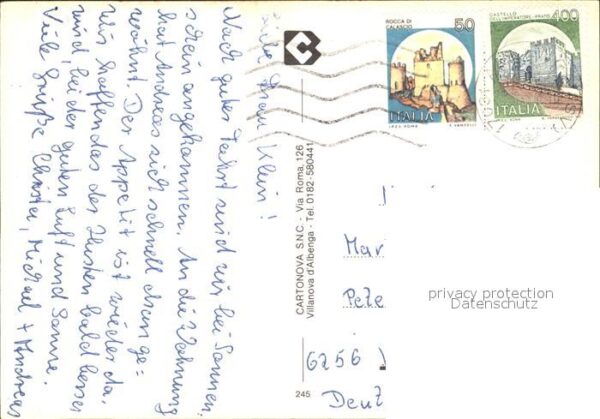 Liebe Frau Klein!
Nach guter Fahrt sind wir bei Sonnen-
schein angekommen. An die Wohnung
hat Andreas sich schnell dran ge=
wöhnt. Der Appetit ist wieder da.
Wir hoffen das der Husten bald besser
wird, bei der guten Luft und Sonne.
Viele Grüße Christa, Michael + Andreas
CARTONOVA S.N.C. - Via Roma, 126
Villanova d'Albenga - Tel. 0182-580441
245
ROCCA DI
CALASCIO
50
ITALIA
I.P.Z.S. ROMA
E. VANGELLI
CASTELLO
DELL'IMPERATORE-PRATO
400
ITALIA
I.P.Z.S. ROMA
Mar
Pete
6256
Deut
privacy protection
Datenschutz